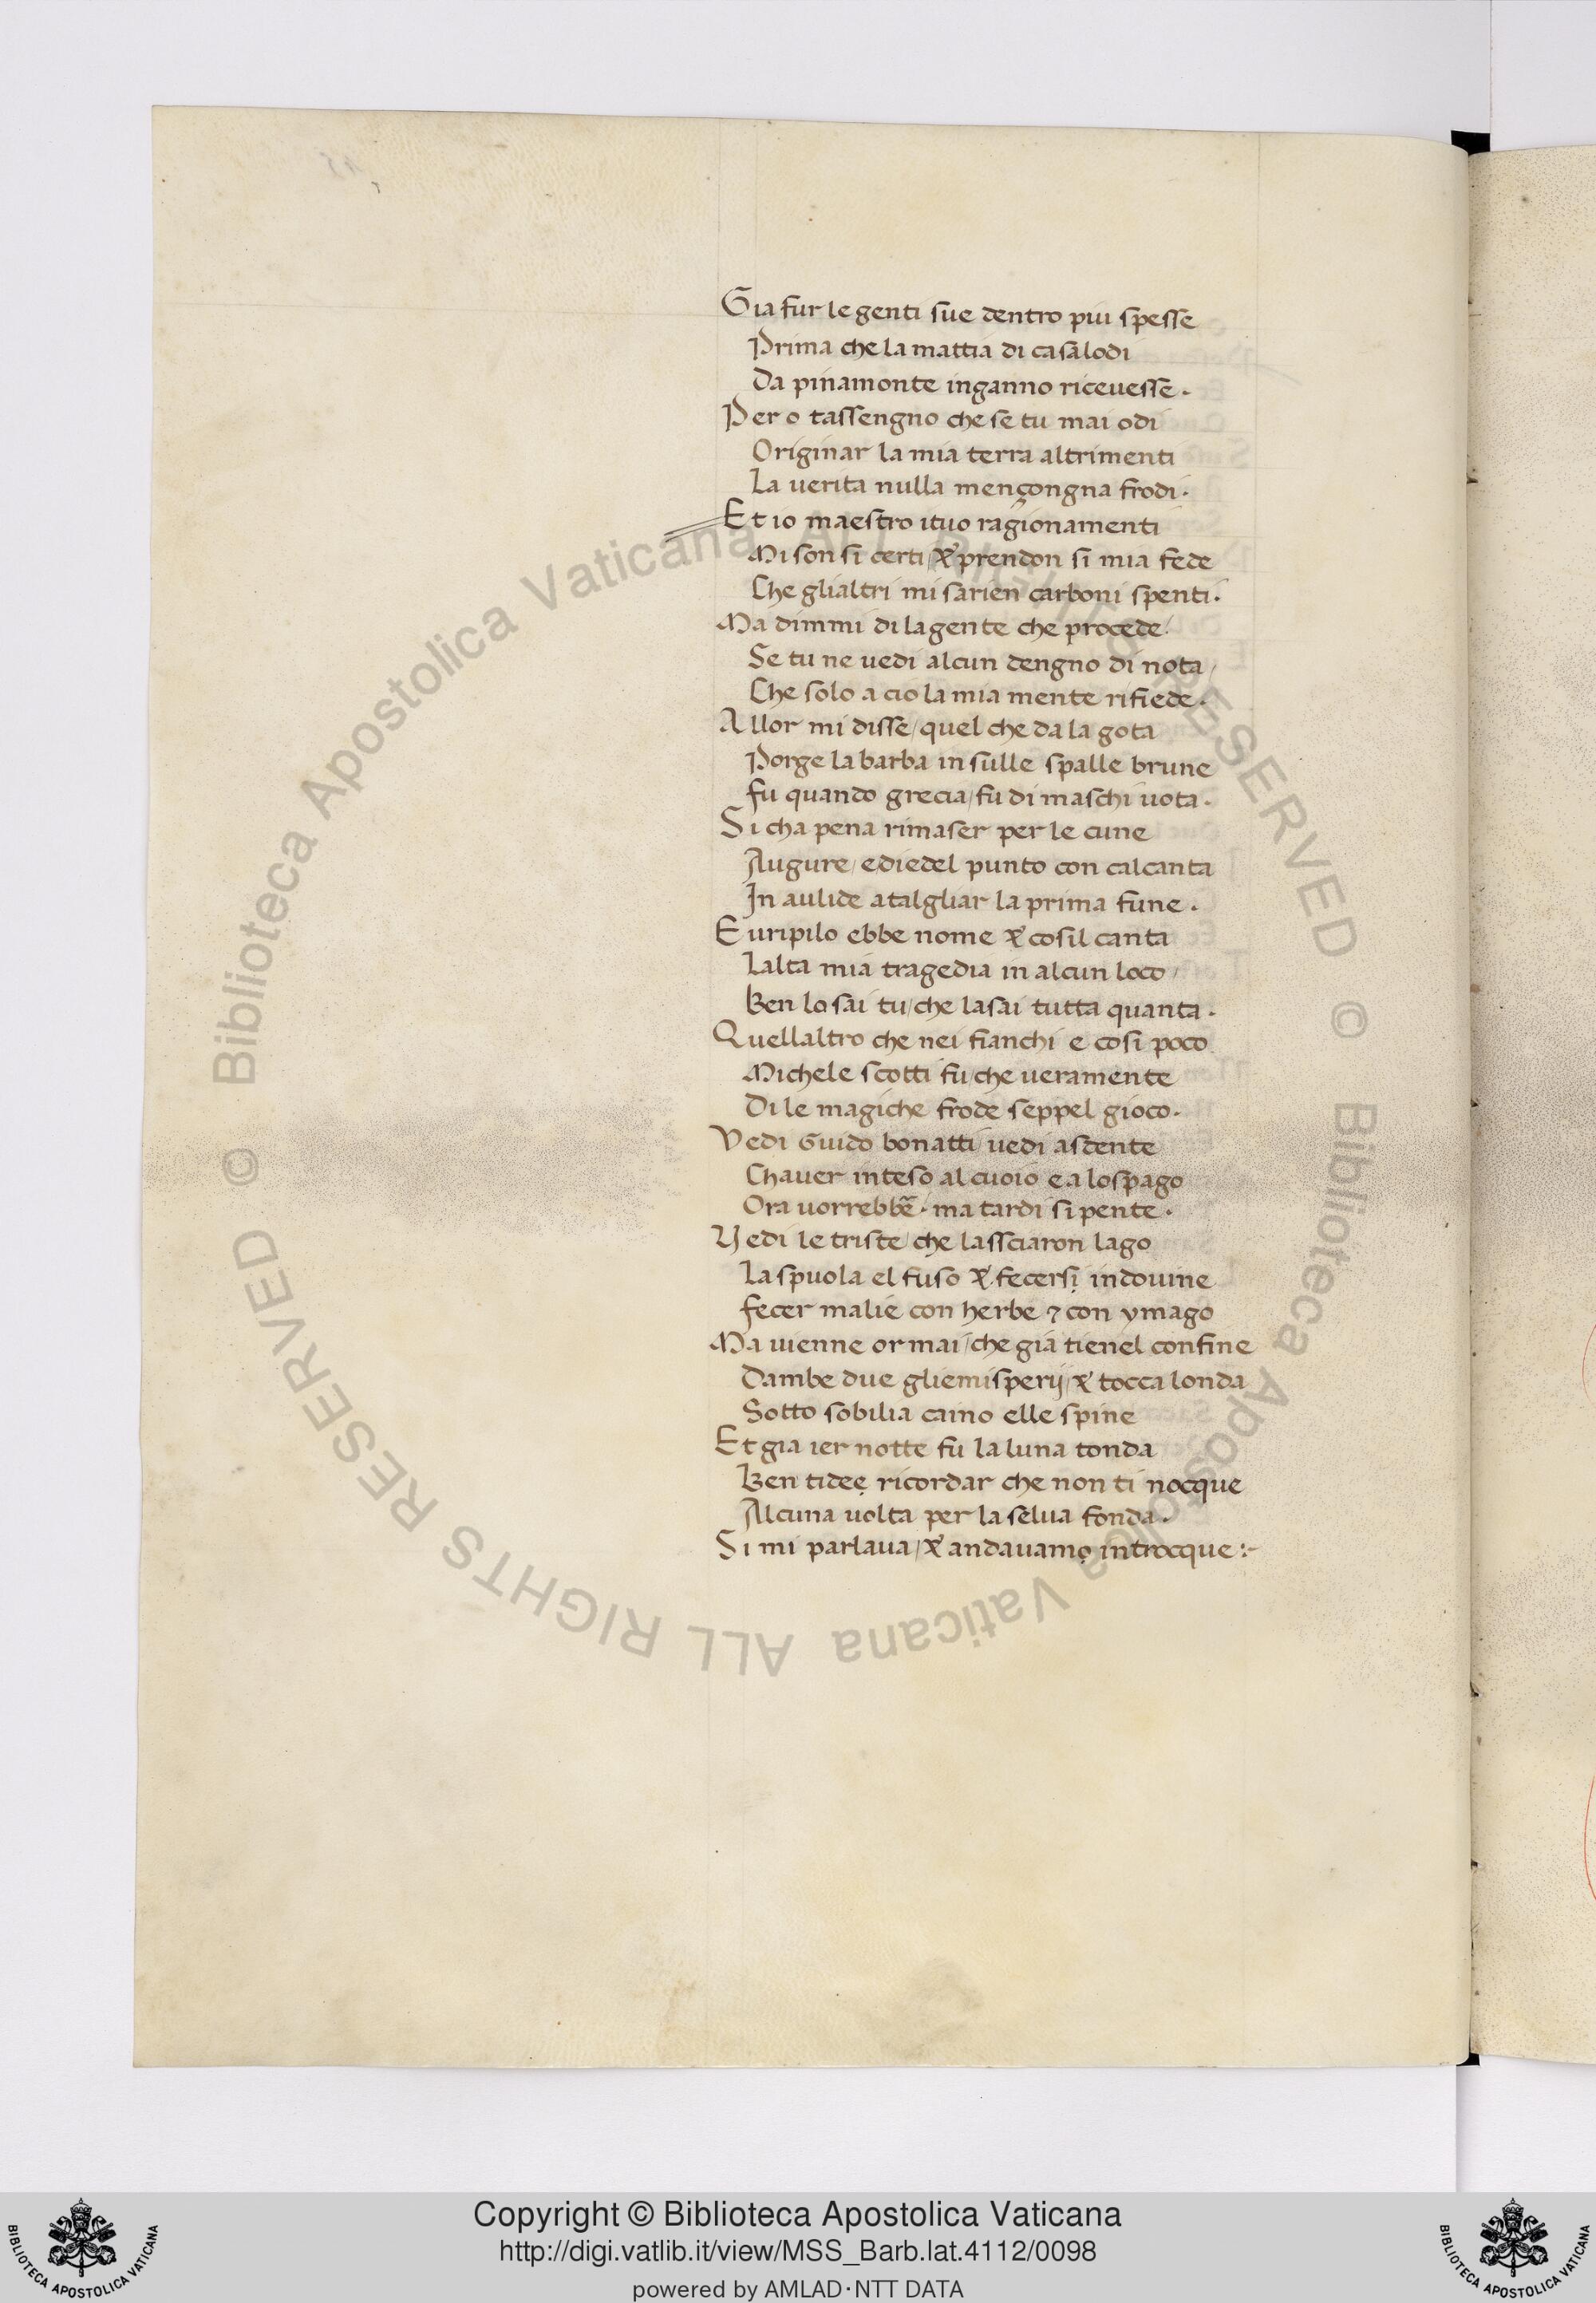 Gia fur le genti sue dentro piu spesse
Prima che la mattia di casalodi
Da pinamonte inganno riceuesse.
Per o tassengno che se tu mai odi
Originar la mia terra altrimenti
La uerita nulla mençongna frodi.
Et io maestro ituo ragionamenti
Mi son si certi / & prendon si mia fede
Che glialtri mi sarien carboni spenti.
Ma dimmi di la gente che procede /
Se tu ne uedi alcun dengno di nota /
Che solo a cio la mia mente rifiede.
Allor mi disse / quel che da la gota
Porge la barba in sulle spalle brune
fu quando grecia / fu di maschi uota.
Si cha pena rimaser per le cune
Augure / ediedel punto con calcanta
In aulide atalgliar la prima fune.
Euripilo ebbe nome & cosil canta
Lalta mia tragedia in alcun loco /
Ben lo sai tu / che lasai tutta quanta.
Quellaltro che nei fianchi e cosi poco
Michele scotti fu / che ueramente
Di le magiche frode seppel gioco.
Vedi Guido bonatti / uedi asdente
Chauer inteso al cuoio e a lospago
Ora uorrebbē. ma tardi si pente.
Vedi le triste / che lassciaron lago
La spuola el fuso & fecersị indouine
fecer malie con herbe ⁊ con ymago
Ma uienne or mai / che gia tienel confine
Dambe due gliemisperij / & tocca londa
Sotto sobilia caino elle spine
Et gia ier notte fu la luna tonda
Ben tidẹe ricordar che non ti nocque
Alcuna uolta per la selua fonda.
Si mi parlaua / & andauamọ introcque :-
© Biblioteca Apostolica Vaticana ALL RIGHTS RESERVED © Biblioteca Apostolica Vaticana ALL RIGHTS RESERVED
Copyright © Biblioteca Apostolica Vaticana
http://digi.vatlib.it/view/MSS_Barb.lat.4112/0098
powered by AMLAD·NTT DATA
BIBLIOTECA APOSTOLICA VATICANA
BIBLIOTECA APOSTOLICA VATICANA